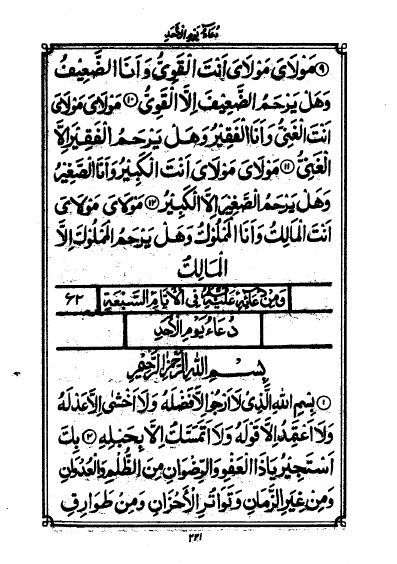 دُعَاءُ يَوْمِ الْأَحَدِ
۹ مَوْلَايَ مَوْلَايَ اَنْتَ الْقَوِيُّ وَاَنَا الضَّعِيْفُ
وَهَلْ يَرْحَمُ الضَّعِيْفَ اِلَّا الْقَوِيُّ ۱۰ مَوْلَايَ مَوْلَايَ
اَنْتَ الْغَنِيُّ وَاَنَا الْفَقِيْرُ وَهَلْ يَرْحَمُ الْفَقِيْرَ اِلَّا
الْغَنِيُّ ۱۱ مَوْلَايَ مَوْلَايَ اَنْتَ الْكَبِيْرُ وَاَنَا الصَّغِيْرُ
وَهَلْ يَرْحَمُ الصَّغِيْرَ اِلَّا الْكَبِيْرُ ۱۲ مَوْلَايَ مَوْلَايَ
اَنْتَ الْمَالِكُ وَاَنَا الْمَمْلُوْكُ وَهَلْ يَرْحَمُ الْمَمْلُوْكَ اِلَّا
الْمَالِكُ
وَمِنْ دُعَائِهٖ عَلَيْهِ السَّلَامُ فِي الْاَيَّامِ السَّبْعَةِ ۶۲
دُعَاءُ يَوْمِ الْاَحَدِ
بِسْمِ اللهِ الرَّحْمٰنِ الرَّحِيْمِ
۱ بِسْمِ اللهِ الَّذِيْ لَا اَرْجُوْ اِلَّا فَضْلَهُ وَلَا اَخْشٰى اِلَّا عَدْلَهُ
وَلَا اَعْتَمِدُ اِلَّا قَوْلَهُ وَلَا اَتَمَسَّكُ اِلَّا بِحَبْلِهٖ ۲ بِكَ
اَسْتَجِيْرُ يَا ذَا الْعَفْوِ وَالرِّضْوَانِ مِنَ الظُّلْمِ وَالْعُدْوَانِ
وَمِنْ غِيَرِ الزَّمَانِ وَتَوَاتُرِ الْاَحْزَانِ وَمِنْ طَوَارِقِ
۲۲۱